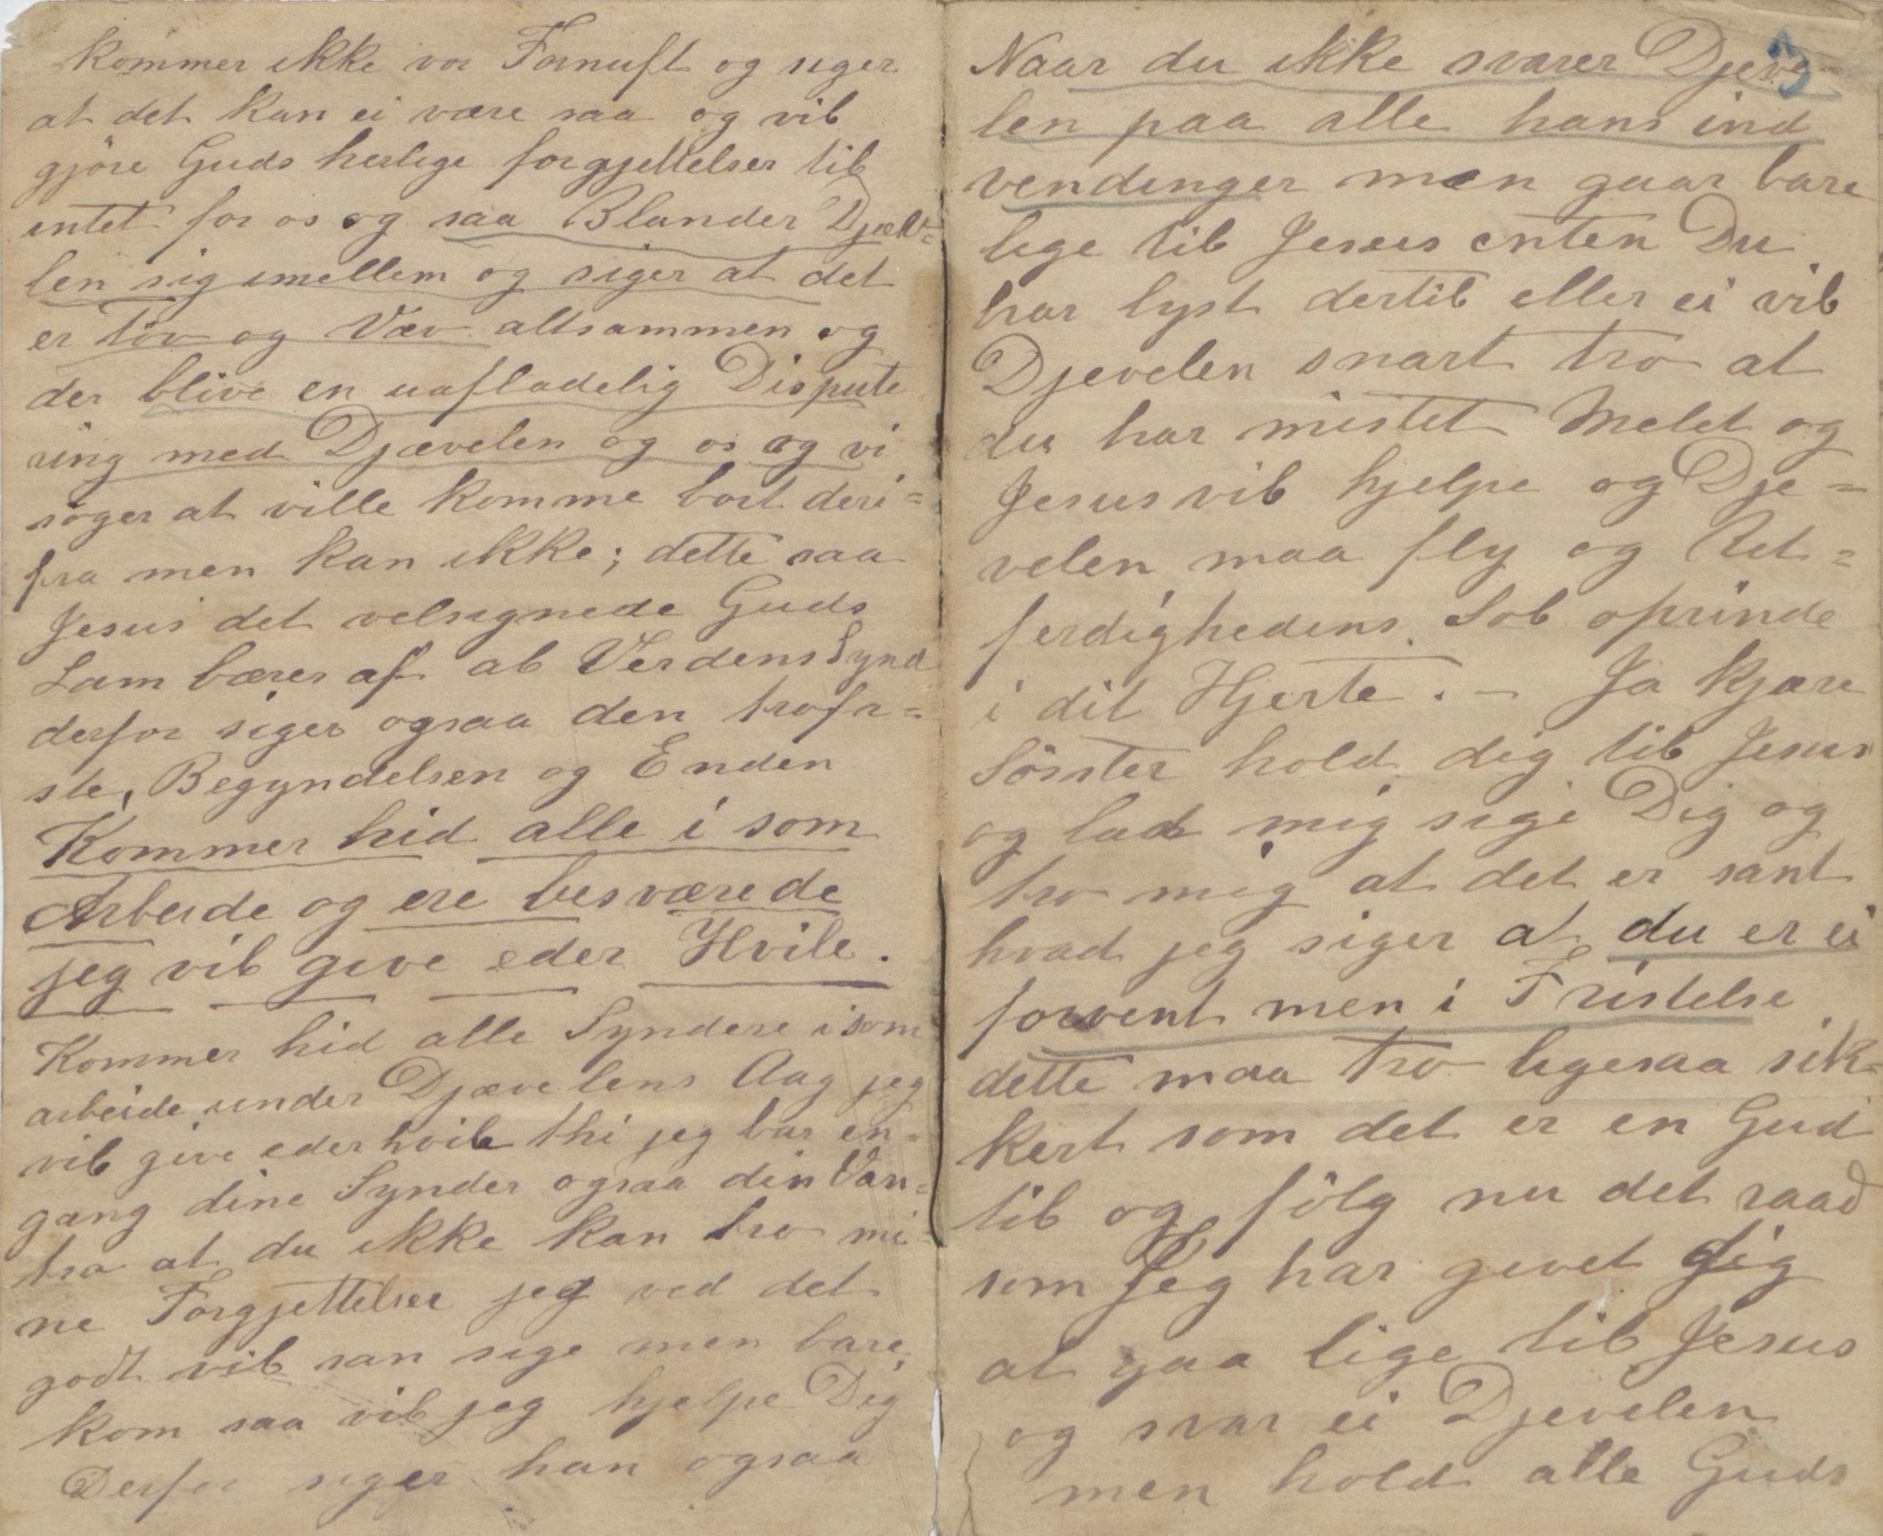 kommer ikke vor Fornuft og siger
at det kan ei være saa og vil
gjöre Guds herlige forgjettelser til
intet for os og saa Blander Djæv=
len sig imellem og siger at det
er töv og Væv altsammen og
der blive en uafladelig Dispute
ring med Djævelen og os og vi
söger at ville komme bort deri=
fra men kan ikke; dette saa
Jesus det velsignede Guds
Lam bærer af al Verdens Synd
derfor siger ogsaa den trofa=
ste, Begyndelsen og Enden
Kommer hid alle i som
Arbeide og ere besværede
jeg vil give eder Hvile.
Kommer hid alle Syndere i som
arbeide under Djævelens Aag jeg
vil give eder hvile thi jeg bar en=
gang dine Synder ogsaa din Van=
tro at du ikke kan tro mi=
ne Forgjettelser jeg ved det
godt vil han sige men bare
kom saa vil jeg hjelpe Dig
Derfor siger han ogsaa
3
Naar du ikke svarer Djeve
len paa alle hans ind
vendinger men gaar bare
lige til Jesus enten Du
har lyst dertil eller ei vil
Djevelen snart tro at
du har mistet Melet og
Jesus vil hjelpe og Dje=
velen maa fly og Ret=
ferdighedens Sol oprinde
i dit Hjerte. - Ja kjære
Söster hold dig til Jesus
og lad mig sige Dig og
tro mig at det er sant
hvad jeg siger at du er ei
forvent men i Fristelse
dette maa tro ligesaa sik=
kert som det er en Gud
til og fölg nu det raad
som Jeg har givet dig
at gaa lige til Jesus
og svar ei Djevelen
men hold alle Guds